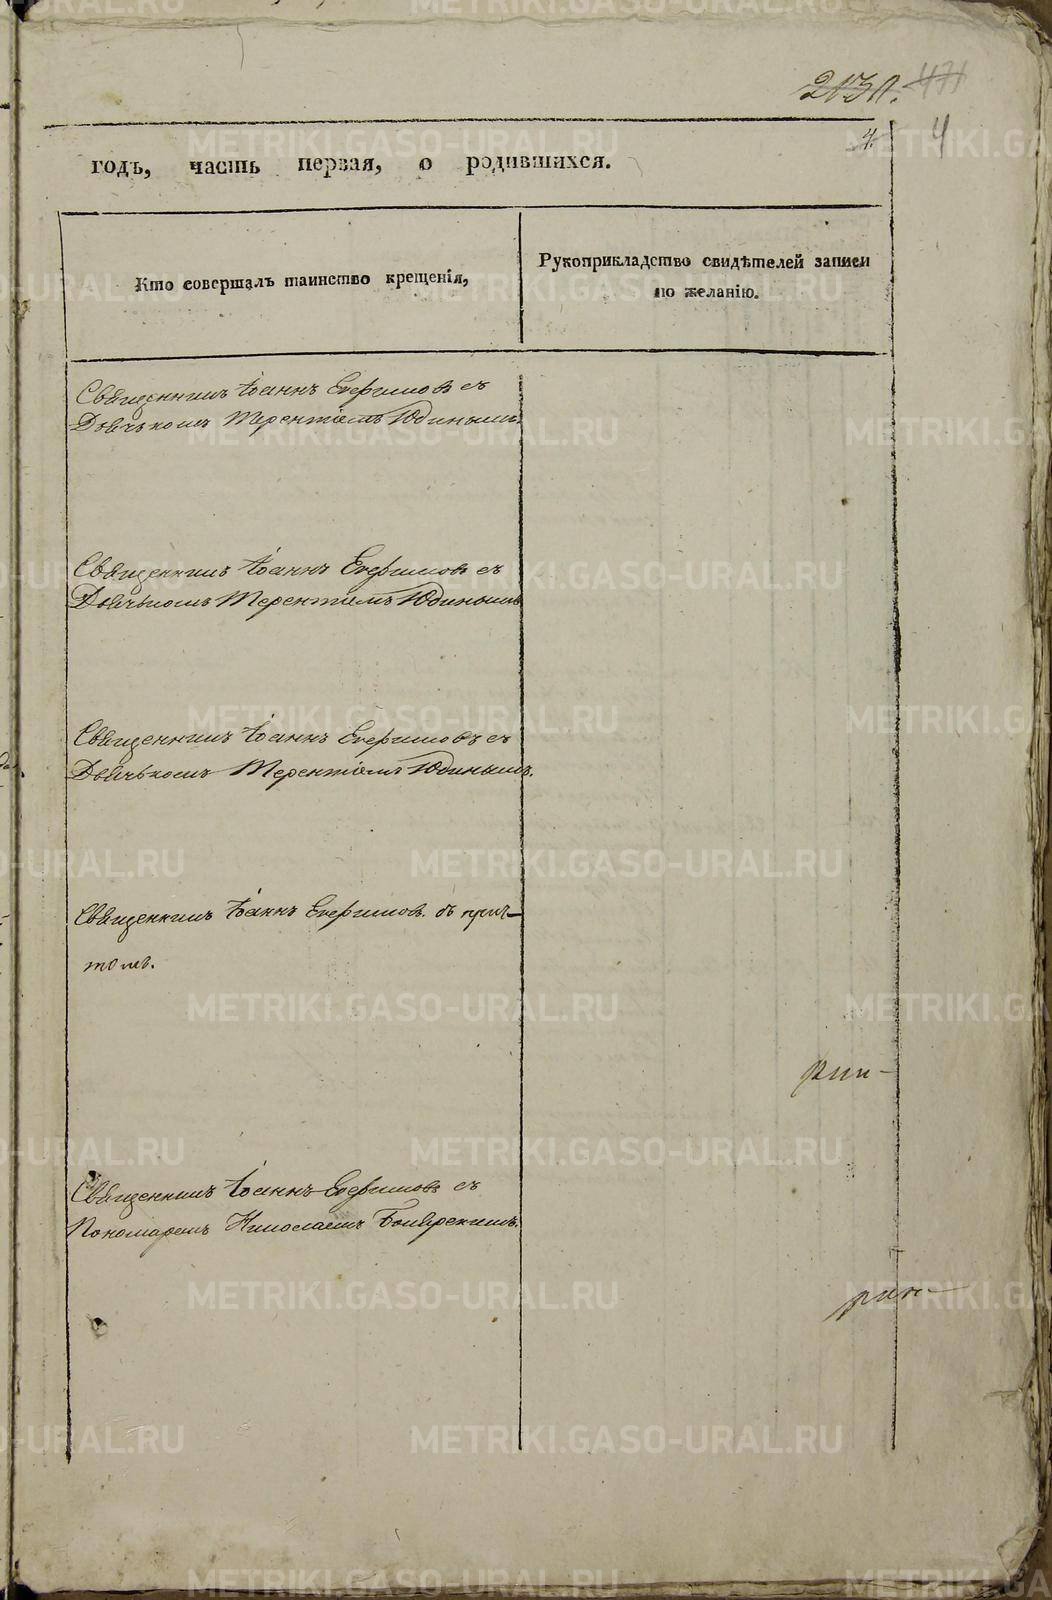 213 л. 471
4. 4
годъ, часть первая, о родившихся.
Кто совершалъ таинство крещенія,
Рукоприкладство свидѣтелей записи
по желанію.
Священникъ Іоаннъ Ефимовъ съ
Дьячькомъ Терентіемъ Юдинымъ.
Священникъ Іоаннъ Ефимовъ съ
Дьячькомъ Терентіемъ Юдинымъ
Священникъ Іоаннъ Ефимовъ съ
Дьячькомъ Терентіемъ Юдинымъ.
Священникъ Іоаннъ Ефимовъ съ прич-
томъ.
Священникъ Іоаннъ Ефимовъ съ
Пономаремъ Николаемъ
METRIKI.GASO-URAL.RU